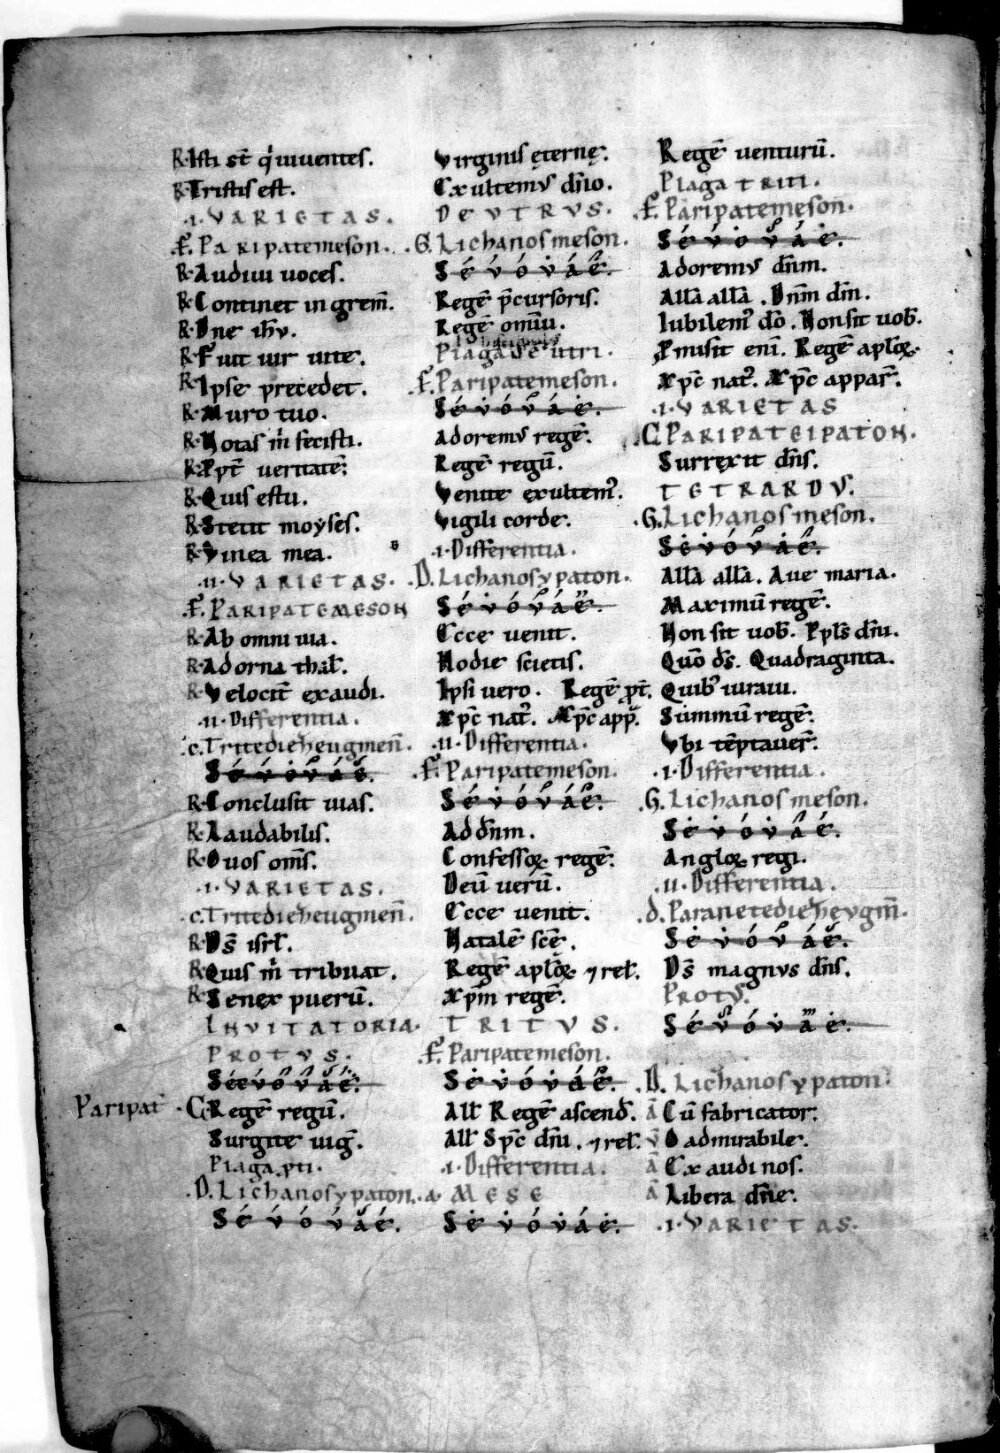 R. Isti st̄ q' uiuentes.
R. Tristis est.
.i. VARIETAS.
.F. PARIPATEMESON.
R. Audiui uoces.
R. Continet in grem̄.
R. Dn̄e ih̄v.
R. Fuit uir uite.
R. Ipse precedet.
R. Muro tuo.
R. Notas m̄ fecisti.
R. Ppt̄ ueritatē.
R. Quis es tu.
R. Stetit moyses.
R. Vinea mea.
.ii. VARIETAS.
.F. PARIPATEMESON
R. Ab omni uia.
R. Adorna thal̄.
R. Velocit̄ exaudi.
.ii. Differentia.
.c. Tritediezeugmen̄.
Sévóváé.
R. Conclusit uias.
R. Laudabilis.
R. O uos om̄s.
.i. VARIETAS.
.c. Tritediezeugmen̄.
R. Ds̄ isrl̄.
R. Quis m̄ tribuat.
R. Senex puerū.
INVITATORIA.
PROTVS.
Séévóváé.
Paripat̄ .C. Regē regū.
Surgite uiḡ.
Plaga p̱ti.
.D. Lichanosypaton.
Sévóváé.
Virginis ęternę.
Exultemus dn̄o.
DEVTRVS.
.G. Lichanosmeson.
Sévóváé.
Regē p̄cursoris.
Regē omīu.
Plaga deutri.
.F. Paripatemeson.
Sévóváé.
Adoremus regē.
Regē regū.
Venite exultem'.
Vigili corde.
.i. Differentia.
.D. Lichanosypaton.
Sévóváé.
Ecce uenit.
Hodie scietis.
Ipsi vero. Regē p̱t̄.
Xp̄c nat'. Xp̄c app̄.
.ii. Differentia.
.F. Paripatemeson.
Sévóváé.
Ad dn̄m.
Confessoꝝ regē.
Deū uerū.
Ecce uenit.
Natalē scē.
Regē apl̄oꝝ ⁊ rel̄.
Xp̄m regē.
TRITVS.
.F. Paripatemeson.
Sévóváé.
All̄ Regē ascend̄.
All̄ Sp̄c dn̄i. ⁊ rel̄.
.i. Differentia.
.a. MESE
Sévóváé.
Regē venturū.
Plaga TRITI.
.F. Paripatemeson.
Sévóváé.
Adoremus dn̄m.
All̄a all̄a. Dn̄m dn̄m.
Iubilem' dō. Non sit uob̄.
P̱misit enī. Regē apl̄oꝝ.
Xp̄c nat'. Xp̄c appar̄.
.i. VARIETAS
.C. PARIPATEIPATON.
Surrexit dn̄s.
TETRARDVS.
.G. Lichanosmeson.
Sévóváé.
All̄a all̄a. Aue maria.
Maximū regē.
Non sit uob̄. Ppl̄s dn̄i.
Quō ds̄. Quadraginta.
Quib' iuraui.
Summū regē.
Vbi tēptauer̄.
.i. Differentia.
.G. Lichanosmeson.
Sévóváé.
Angloꝝ regi.
.ii. Differentia.
.d. Paranetediezevgm̄.
Sévóváé.
Ds̄ magnus dn̄s.
PROTV.
Sévóváé.
.D. Lichanosypaton.
Ā Cū fabricator.
V̄ O admirabile.
Ā Exaudi nos.
Ā Libera dn̄e.
.i. VARIETAS.